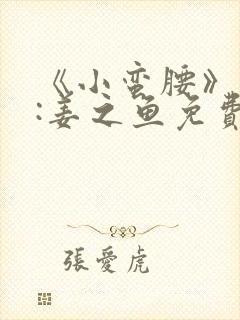 《小蛮腰》
:姜之鱼免費
張愛虎